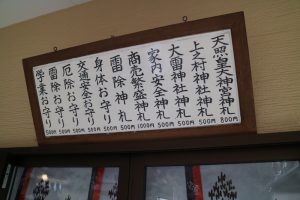 天照皇大神宮神札 800円
上之村神社神札 500円
大雷神社神札 500円
家内安全神札 500円
商売繁盛神札 1000円
雷除神札 500円
身体お守り 500円
交通安全お守り 500円
厄除お守り 500円
雷除お守り 500円
学業お守り 500円